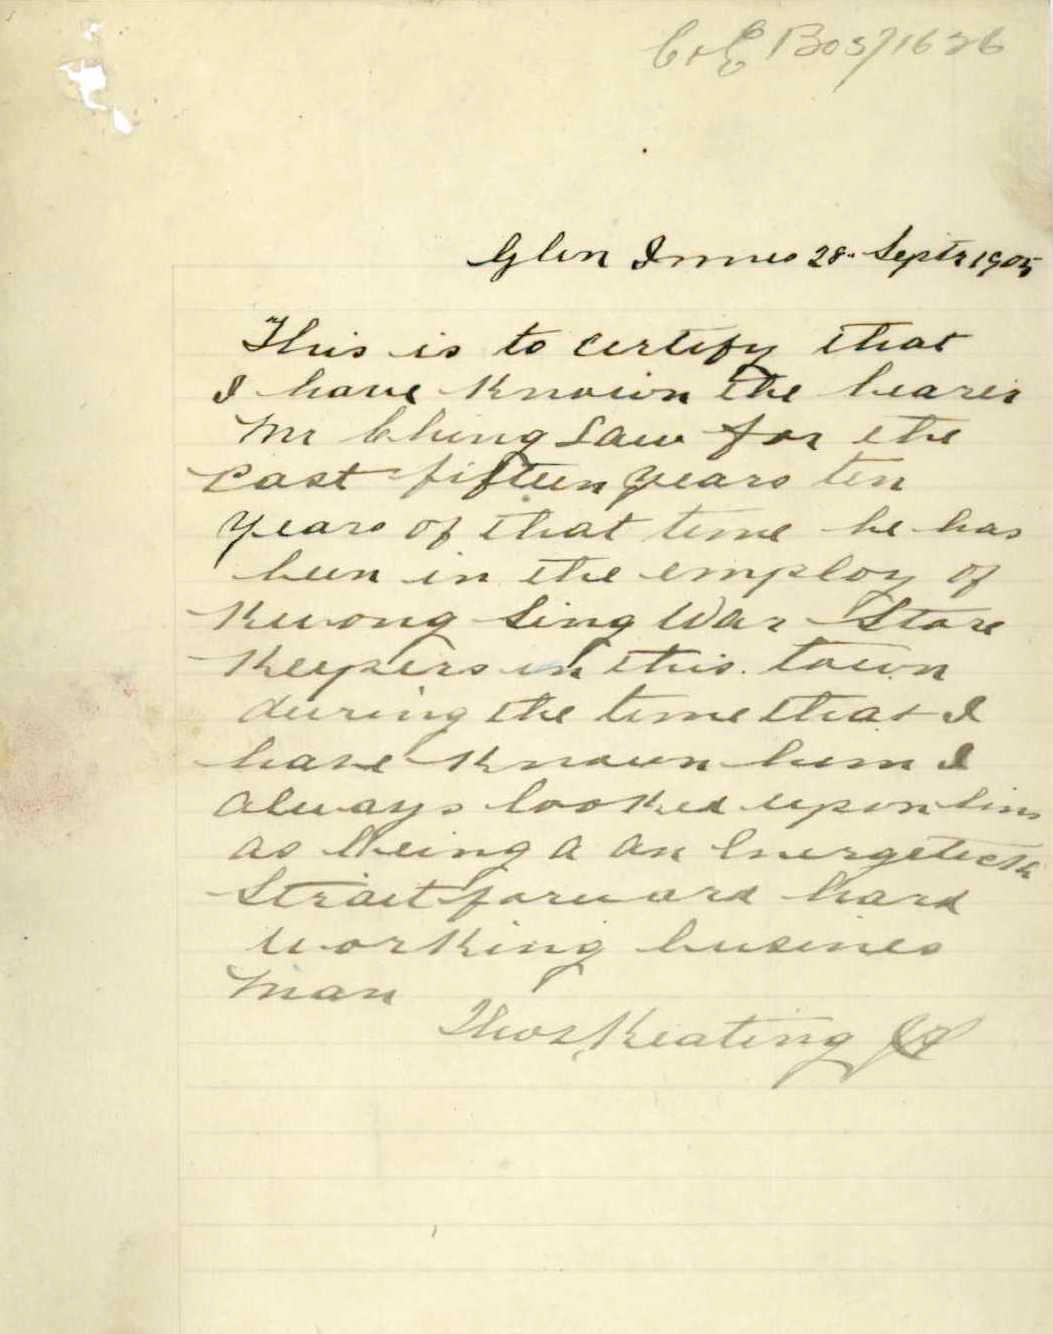 C & E B 05/1626
Glen Innes 28. Septr 1905
This is to certify that
I have known the bearer
Mr Ching Law for the
Past fifteen years ten
years of that time he has
been in the employ of
Kwong Sing War Store
Keepers in this town
during the time that I
have known him I
always looked upon him
as being a an Energetick
Straitforward hard
working busines
man
Thos Keating